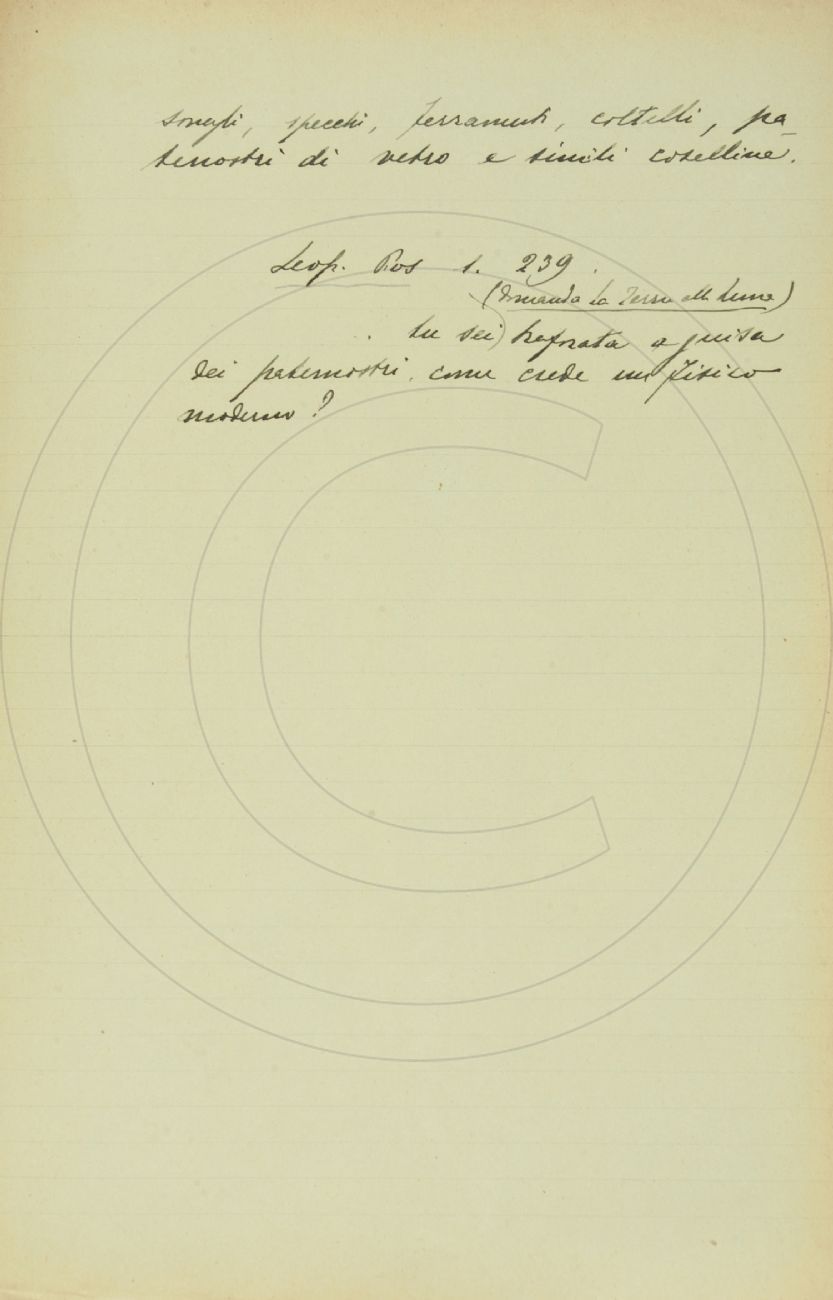 sonagli, specchi, ferramenti, coltelli, pa-
ternostri di vetro e simili coselline.
Leop. Pros 1. 239.
(domanda la Terra alla Luna)
tu sei traforata a guisa
dei paternostri, come crede un fisico
moderno?